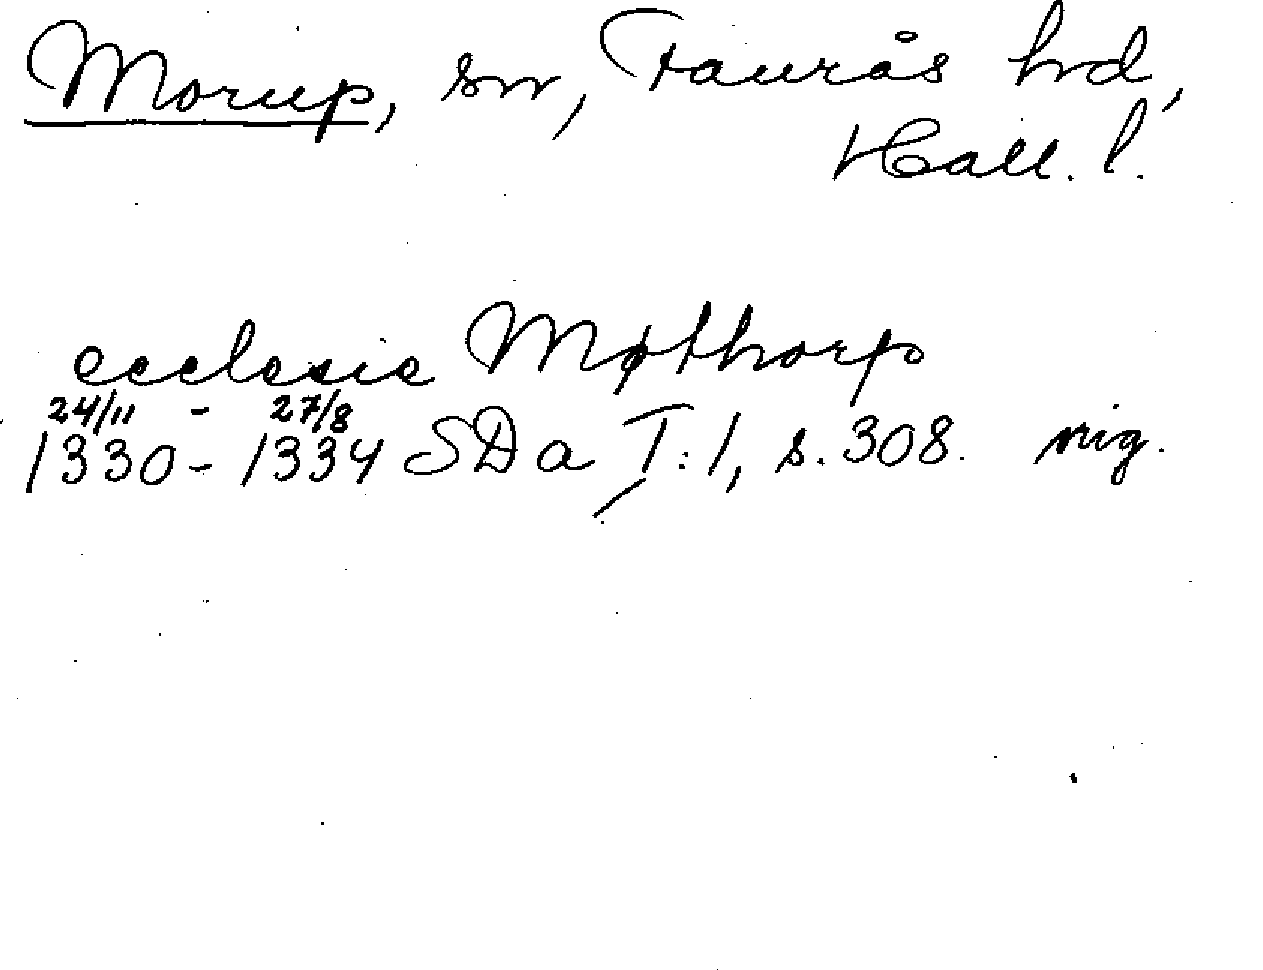 Morup, sn, Faurås hd,
Hall. l.
ecclesie Møthorp
24/11 - 27/8
1330 - 1334 SDa I:1, s. 308. vig.